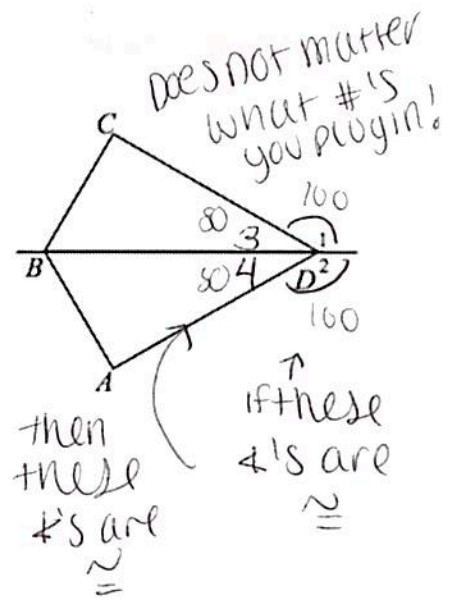 Does not matter
what #'s
you plugin!
C
100
80
3
1
B
80
4
D
2
100
A
↑
if these
∡'s are
≅
then
these
∡'s are
≅